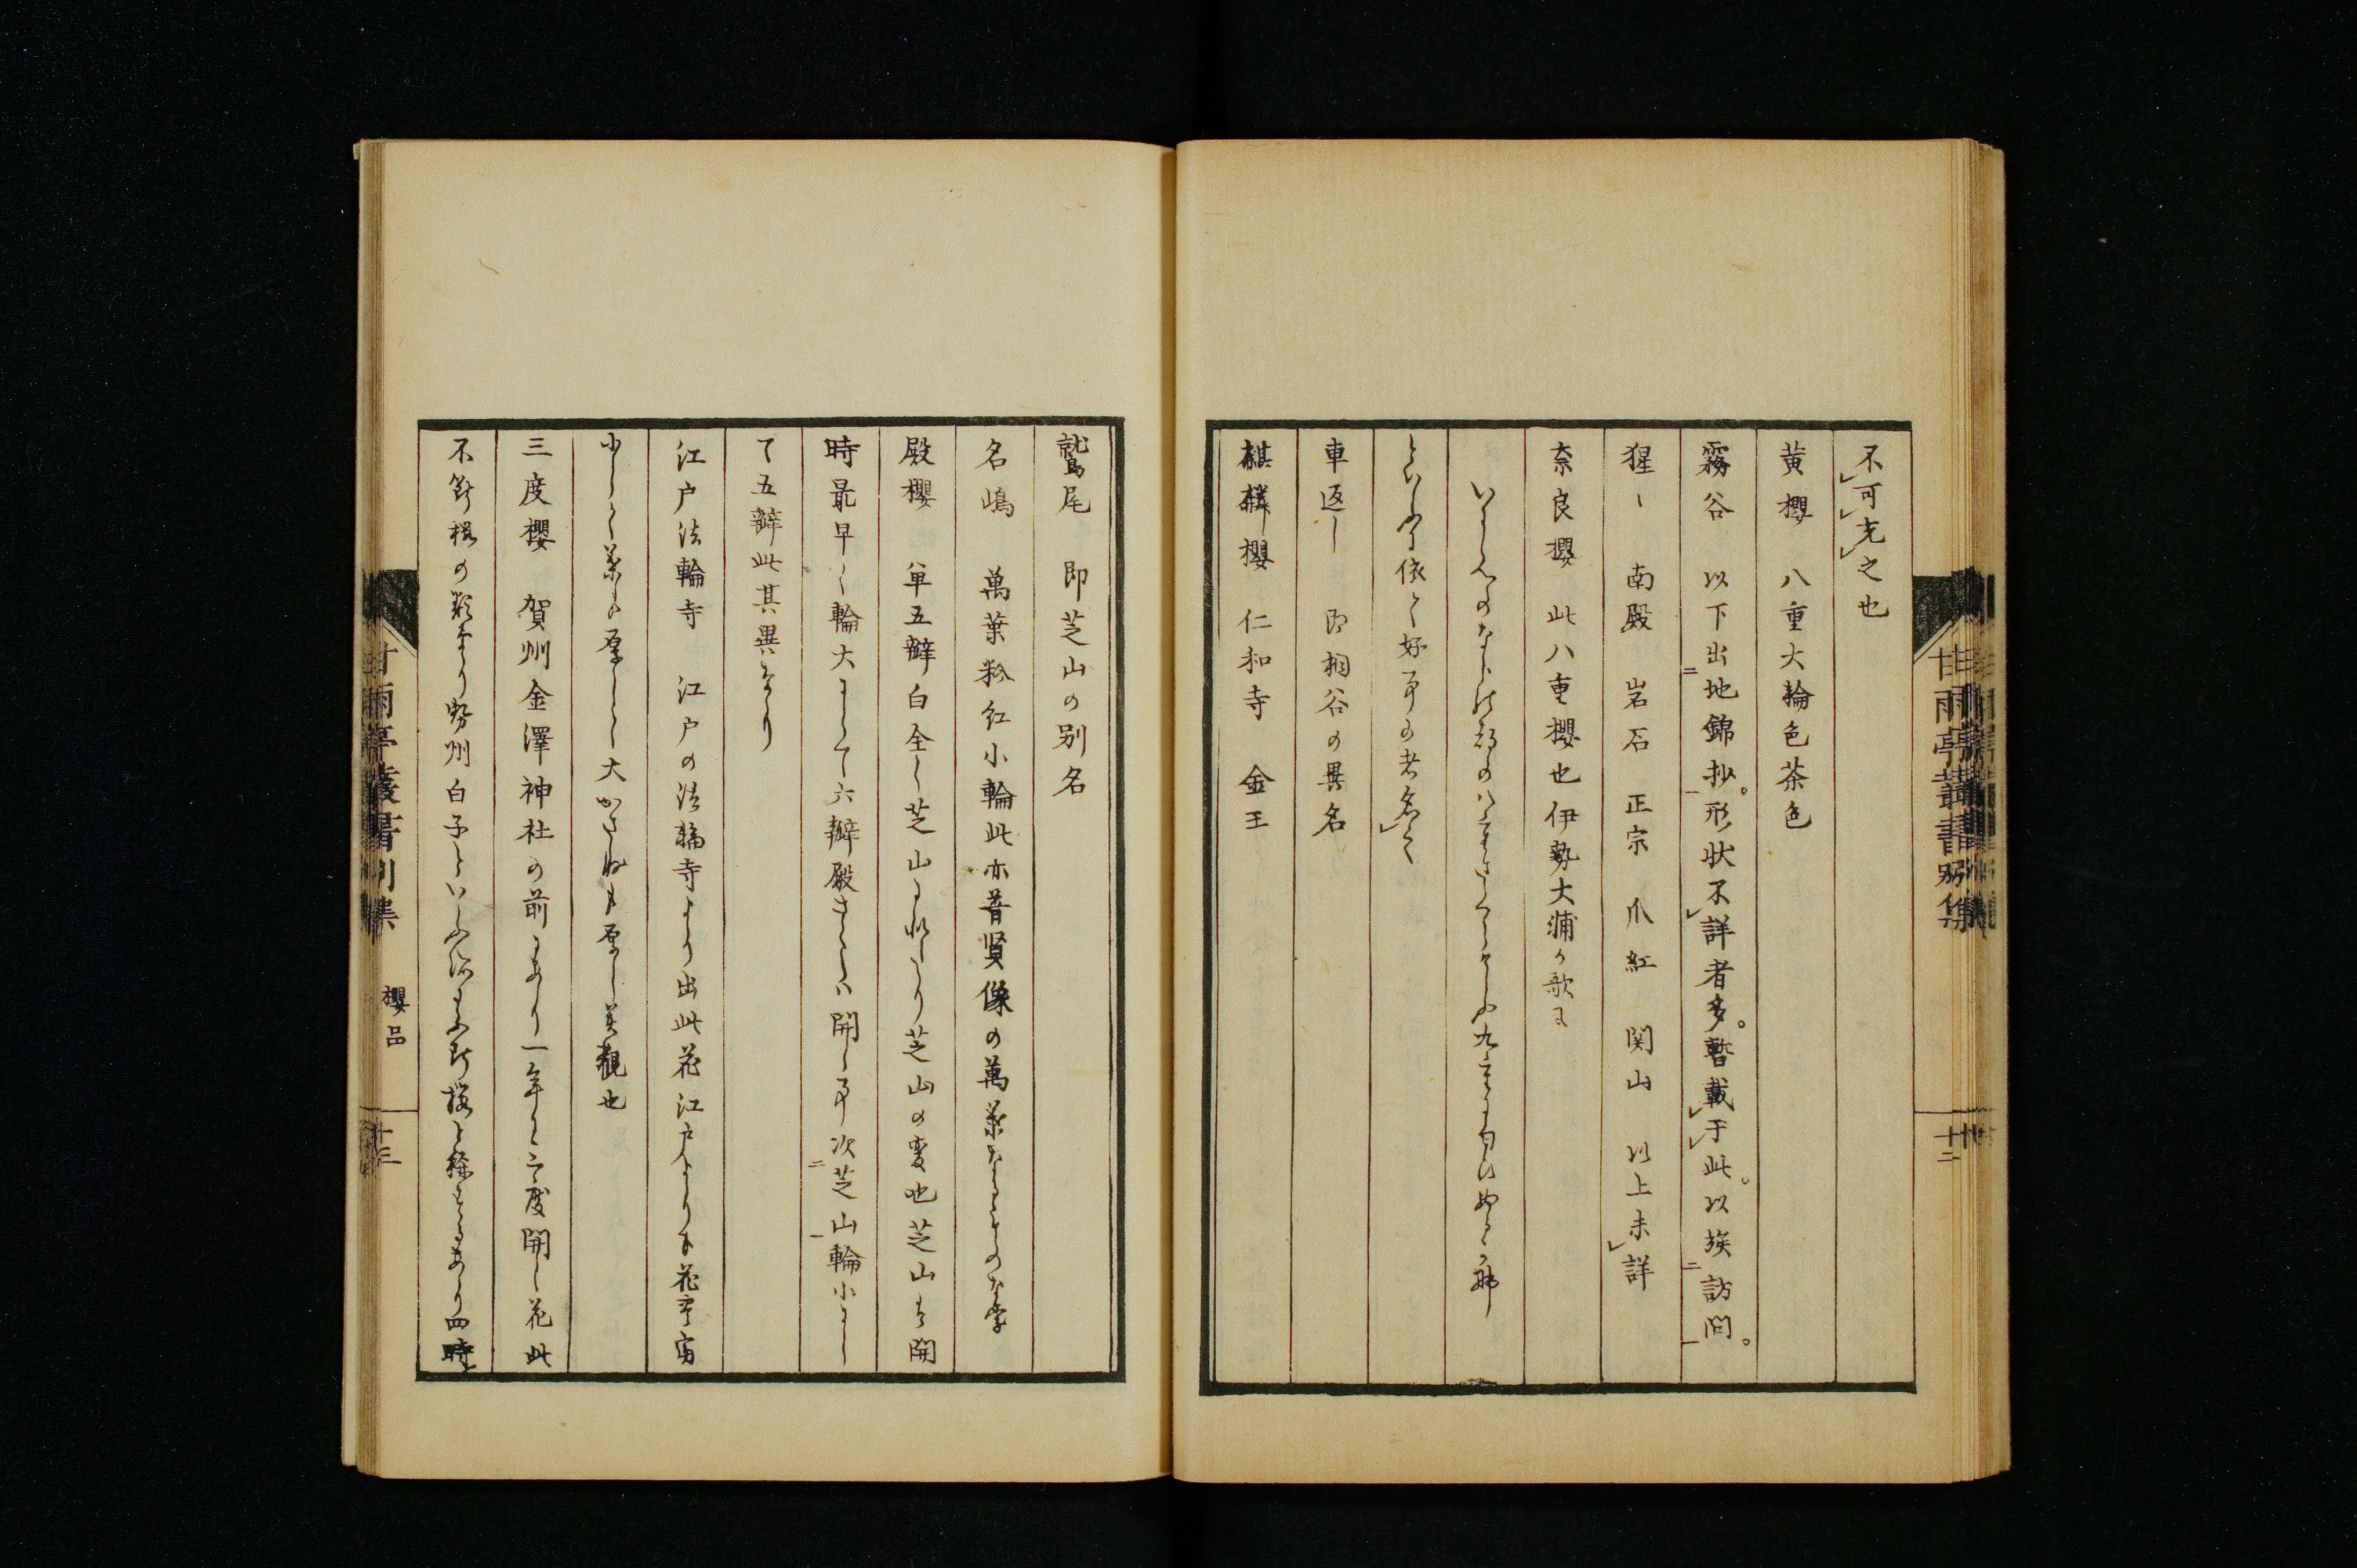 不可克之也
黄櫻 八重大輪色茶色
霧谷 以下出地錦抄。形状不詳者多。暫載于此。以族訪問。
猩〻 南殿 岩石 正宗 爪紅 関山 以上未詳
奈良櫻 此八重櫻也伊勢大浦か歌に
いにしへのならの都の八重さくらけふ九重に匂ひぬる哉
といふに依て好事の者名く
車返し 即桐谷の異名
麒麟櫻 仁和寺 金王
鷲尾 即芝山の別名
名嶋 萬葉粉紅小輪此亦普賢像の萬葉なるもの
殿櫻 単五辧白全く芝山に似たり芝山の変也芝山は開
時最早く輪大にして六辧殿さくらハ開く事次芝山輪小にし
て五辧此其異なり
江戸法輪寺 江戸の法輪寺より出此花江戸よりも花
少しく葉も厚くして大かさねも厚し美觀也
三度櫻 賀州金澤神社の前にあり一年に三度開く花此
不断櫻の類なり勢州白子といふ所に不断櫻と稱するあり四時
甘雨亭叢書別集
十二
甘雨亭叢書別集 櫻品
十三